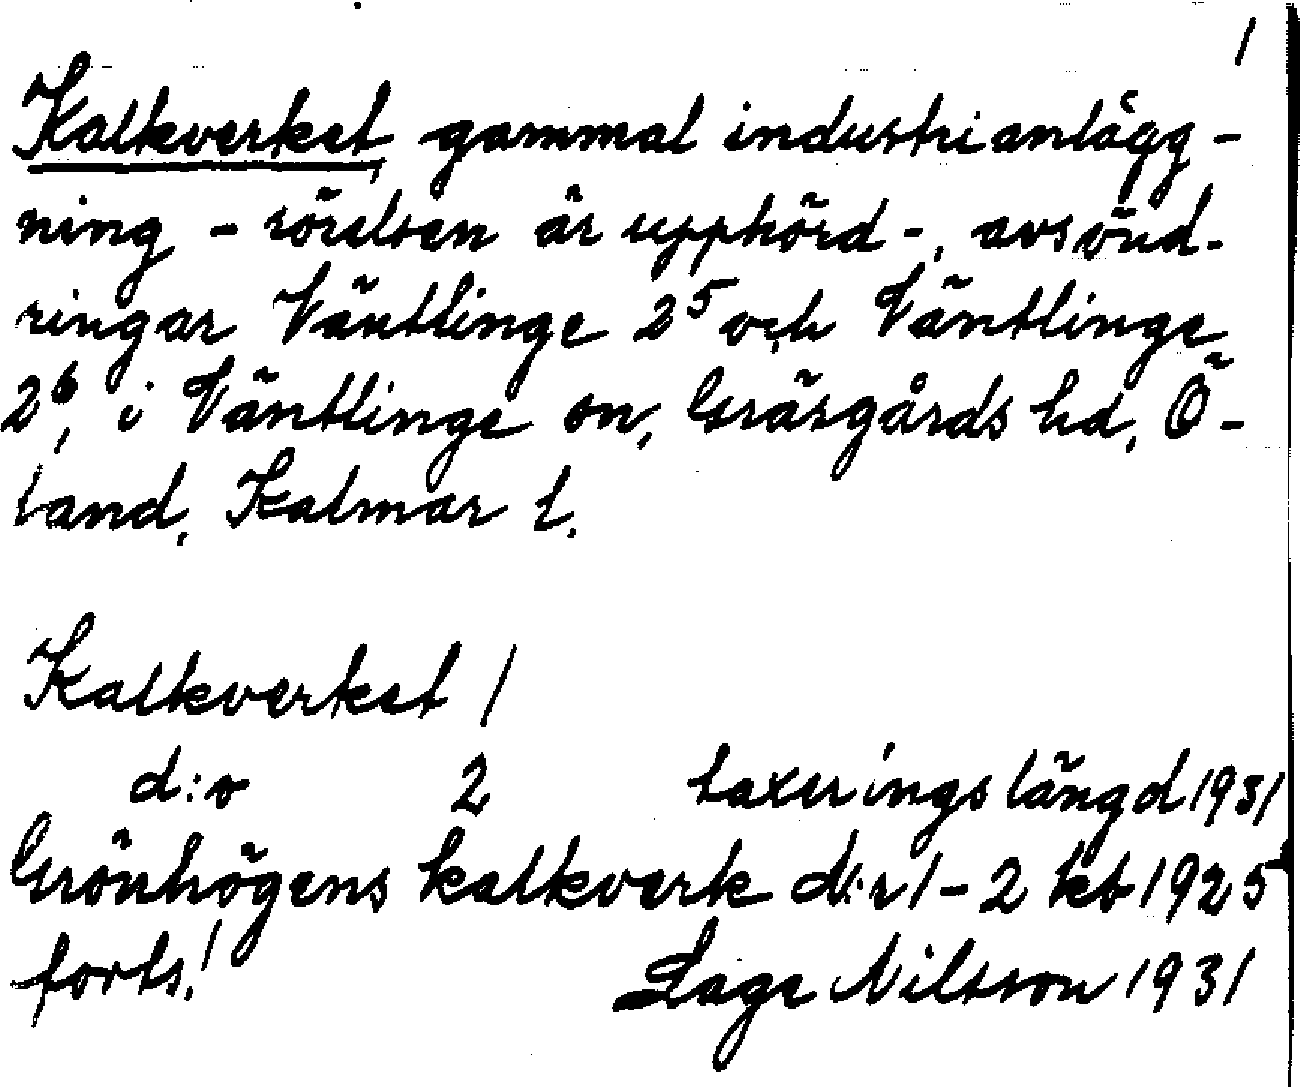 1
Kalkverket, gammal industrianlägg-
ning - rörelsen är upphörd -, avsönd-
ringar Ventlinge 2⁵ och Ventlinge
2⁶, i Ventlinge sn, Gräsgårds hd, Ö-
land, Kalmar l.
Kalkverket 1
d:o 2 taxeringslängd 1931
Grönhögens kalkverk N:r 1-2 kb 1925
forts.! Sage Nilsson 1931